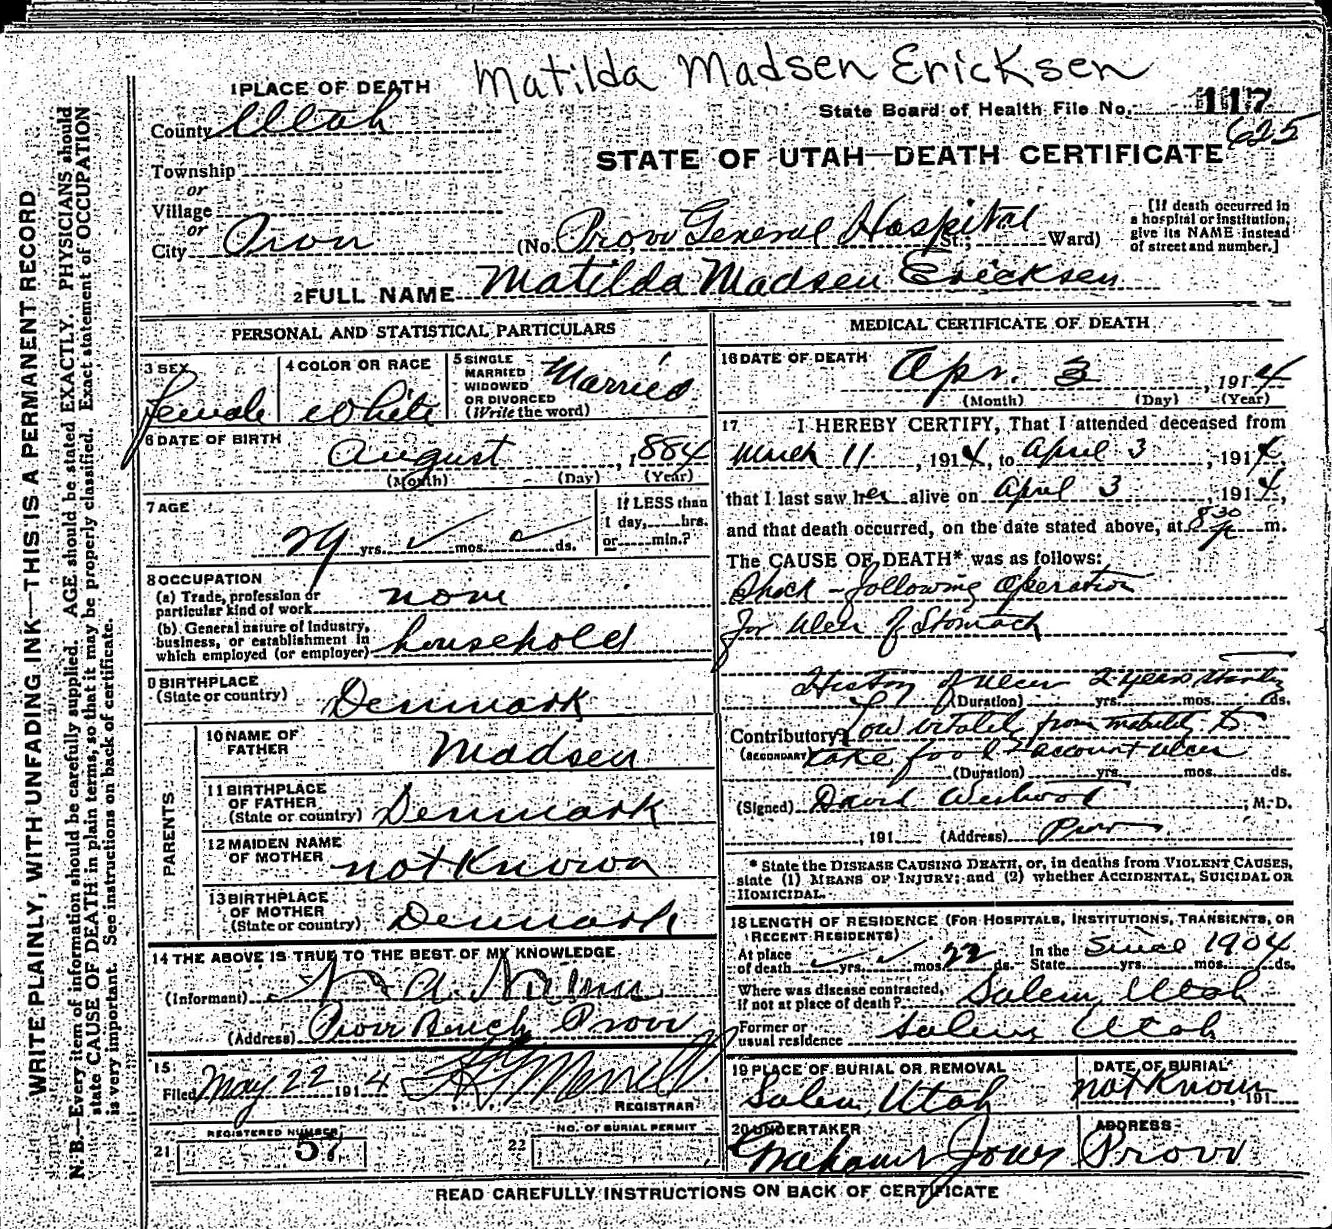 Matilda Madsen Ericksen
1 PLACE OF DEATH
State Board of Health File No. 117
625
County Utah
STATE OF UTAH—DEATH CERTIFICATE
Township
or
Village
or
City Provo (No. Provo General Hospital St.; Ward)
[If death occurred in
a hospital or institution,
give its NAME instead
of street and number.]
2 FULL NAME Matilda Madsen Ericksen
PERSONAL AND STATISTICAL PARTICULARS
3 SEX
female
4 COLOR OR RACE
White
5 SINGLE
MARRIED
WIDOWED
OR DIVORCED
(Write the word)
Married
6 DATE OF BIRTH
August , 1884
(Month) (Day) (Year)
7 AGE
29 yrs. mos. ds.
If LESS than
1 day, hrs.
or min.?
8 OCCUPATION
(a) Trade, profession or
particular kind of work none
(b) General nature of Industry,
business, or establishment in
which employed (or employer) household
9 BIRTHPLACE
(State or country) Denmark
PARENTS
10 NAME OF
FATHER Madsen
11 BIRTHPLACE
OF FATHER
(State or country) Denmark
12 MAIDEN NAME
OF MOTHER not Known
13 BIRTHPLACE
OF MOTHER
(State or country) Denmark
14 THE ABOVE IS TRUE TO THE BEST OF MY KNOWLEDGE
(Informant) A.
(Address) Provo Bench Provo
15
Filed May 22 1914
REGISTRAR
21 REGISTERED NUMBER
57
22 NO. OF BURIAL PERMIT
MEDICAL CERTIFICATE OF DEATH
16 DATE OF DEATH
Apr. 3 , 1914
(Month) (Day) (Year)
17 I HEREBY CERTIFY, That I attended deceased from
March 11 , 1914, to April 3 , 1914
that I last saw her alive on April 3 , 1914,
and that death occurred, on the date stated above, at 8 30 p m.
The CAUSE OF DEATH* was as follows:
Shock - following Operation
for Ulcer of Stomach
History of ulcer 2 years
(Duration) yrs. mos. ds.
Contributory Low vitality from inability to
(SECONDARY) take food account ulcer
(Duration) yrs. mos. ds.
(Signed) David Westwood , M. D.
, 191 (Address) Provo
* State the DISEASE CAUSING DEATH, or, in deaths from VIOLENT CAUSES,
state (1) MEANS OF INJURY; and (2) whether ACCIDENTAL, SUICIDAL OR
HOMICIDAL.
18 LENGTH OF RESIDENCE (FOR HOSPITALS, INSTITUTIONS, TRANSIENTS, OR
RECENT RESIDENTS)
At place
of death yrs. mos. 22 ds.
In the
State Since 1904 yrs. mos. ds.
Where was disease contracted,
if not at place of death? Salem, Utah
Former or
usual residence Salem, Utah
19 PLACE OF BURIAL OR REMOVAL
Salem, Utah
DATE OF BURIAL
not Known , 191
20 UNDERTAKER
ADDRESS
Provo
READ CAREFULLY INSTRUCTIONS ON BACK OF CERTIFICATE
WRITE PLAINLY, WITH UNFADING INK—THIS IS A PERMANENT RECORD
N. B.—Every item of information should be carefully supplied. AGE should be stated EXACTLY. PHYSICIANS should
state CAUSE OF DEATH in plain terms, so that it may be properly classified. Exact statement of OCCUPATION
is very important. See instructions on back of certificate.